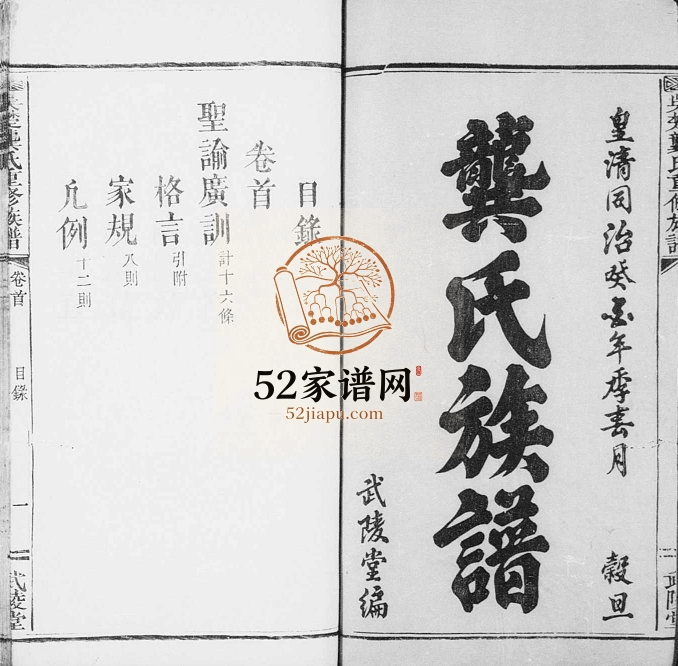 皇清同治癸亥年季春月 穀旦
龔氏族譜
武陵堂編
目錄
卷首
聖諭廣訓 計十六條
格言 引附
家規 八則
凡例 十二則
龔氏重修族譜
卷首
目錄
一
武陵堂
龔氏重修族譜
武陵堂
52家谱网
52jiapu.com